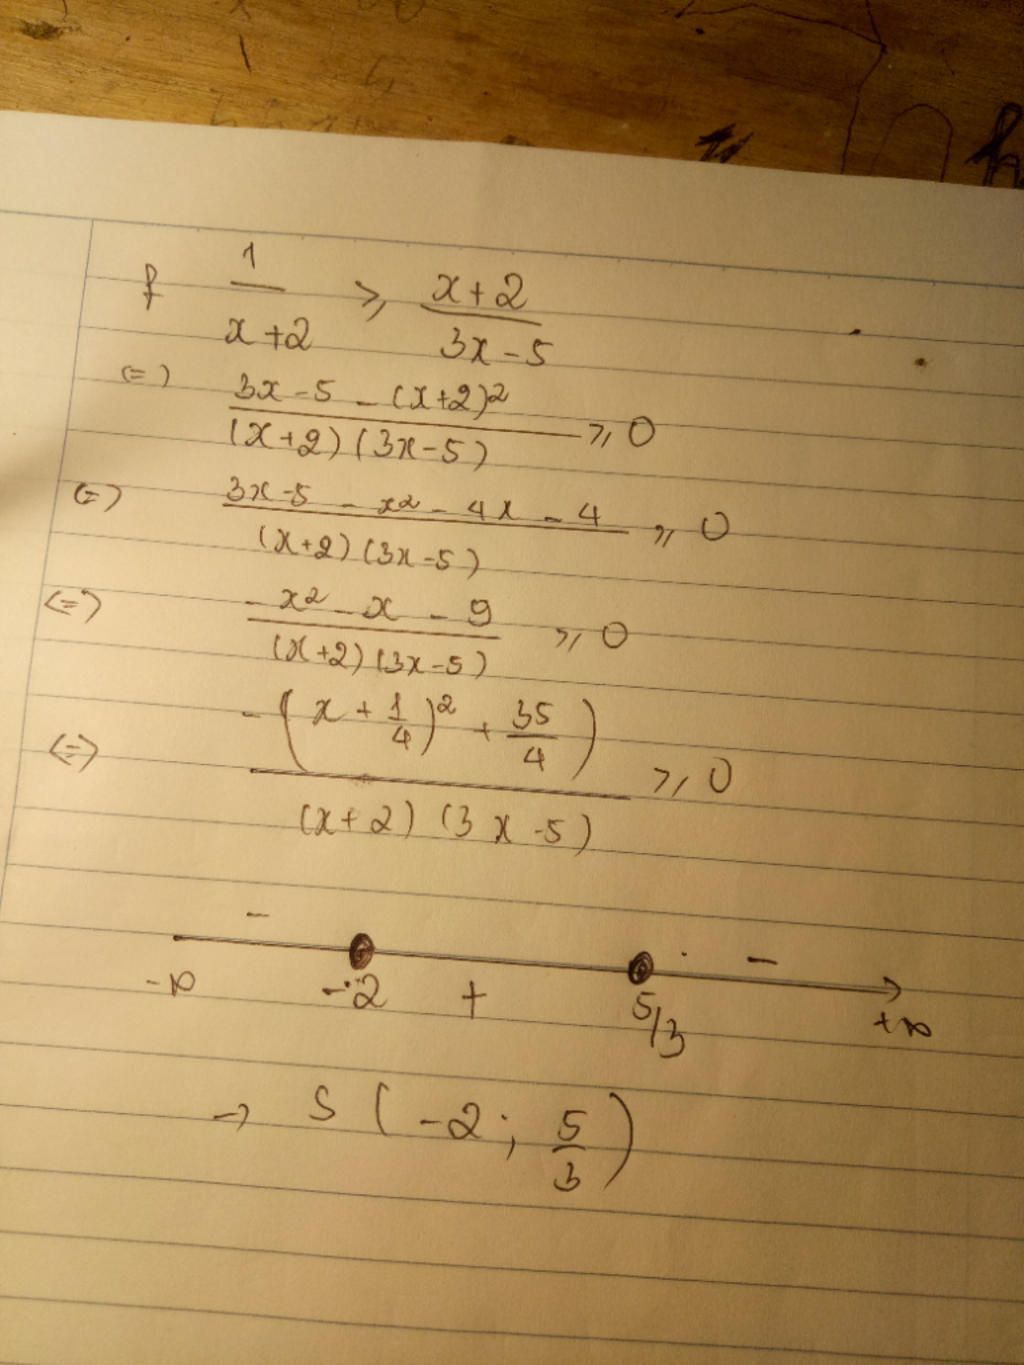 f 1/(x+2) ⩾ (x+2)/(3x-5)
(=) (3x-5-(x+2)²)/((x+2)(3x-5)) ⩾ 0
(=) (3x-5-x²-4x-4)/((x+2)(3x-5)) ⩾ 0
(=) (-x²-x-9)/((x+2)(3x-5)) ⩾ 0
(=) -((x+1/4)²+35/4)/((x+2)(3x-5)) ⩾ 0
- -
-∞ -2 + 5/3 +∞
→ S (-2; 5/3)